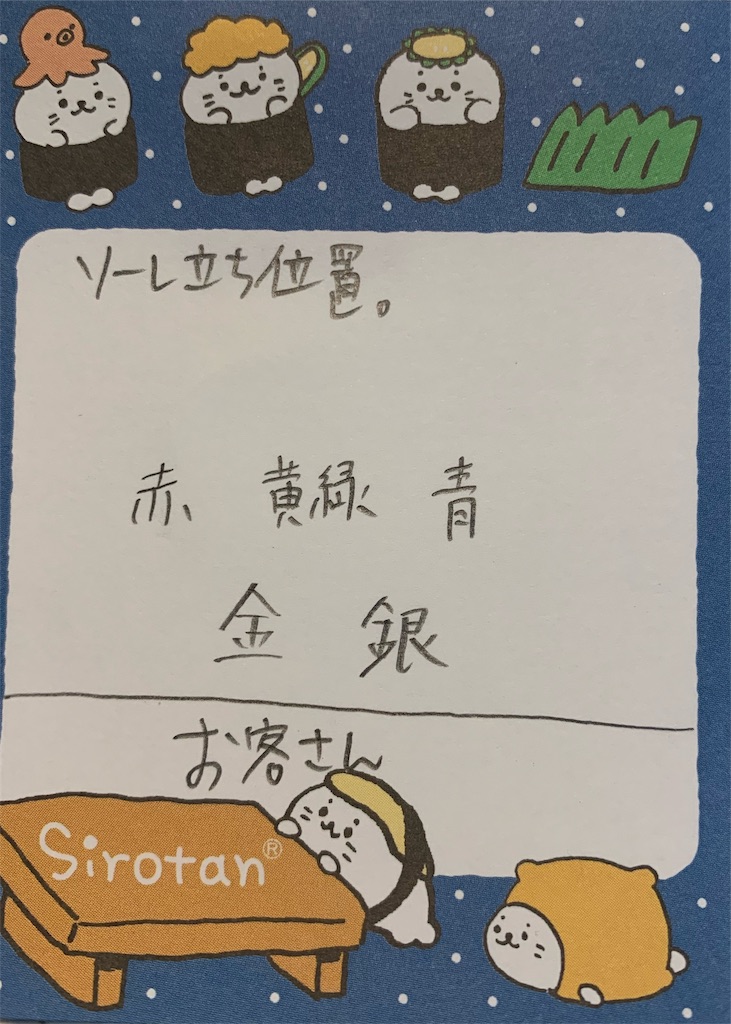 ソーレ立ち位置。
赤 黄緑 青
金 銀
お客さん
Sirotan®